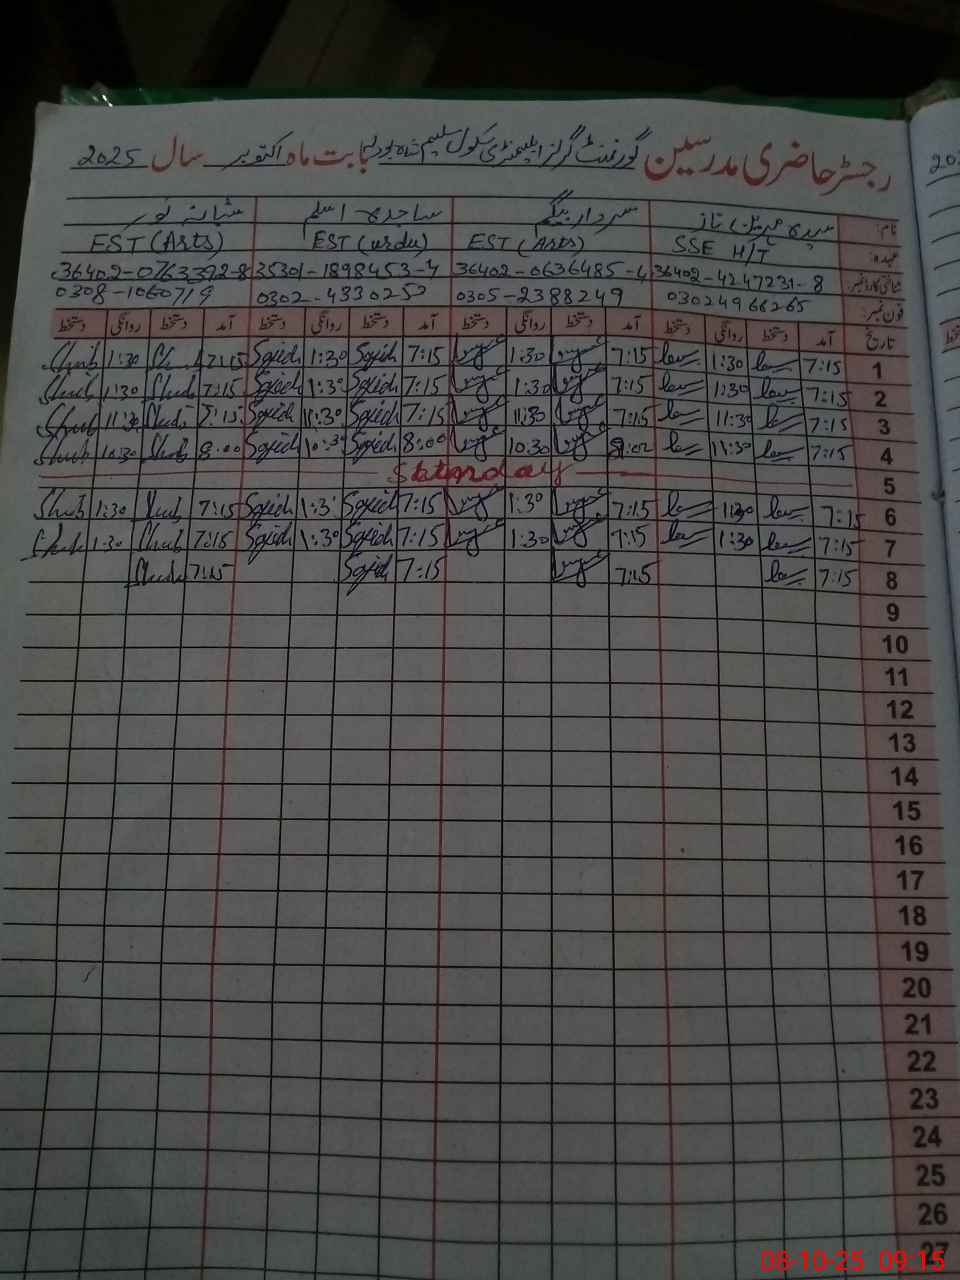 رجسٹر حاضری مدرسین گورنمنٹ گرلز ایلیمنٹری سکول سلیم شاہ بودلہ بابت ماہ اکتوبر سال 2025
نام: سیدہ ناز سردار بیگم ساجدہ اسلم شبانہ نور
عہدہ: SSE H/T EST (Arts) EST (urdu) EST (Arts)
شناختی کارڈ نمبر 36402-4247231-8 36402-0636485-4 35301-1898453-4 36402-0763392-8
فون نمبر: 03024966265 0305-2388249 0302-4330252 0308-1060719
تاریخ آمد دستخط روانگی دستخط آمد دستخط روانگی دستخط آمد دستخط روانگی دستخط آمد دستخط روانگی دستخط
1 7:15 1:30 7:15 1:30 7:15 Sajid 1:30 Sajid 7:15 1:30 Shub
2 7:15 1:30 7:15 1:30 7:15 Sajid 1:30 Sajid 7:15 Shub 1:30 Shub
3 7:15 11:30 7:15 11:30 7:15 Sajid 11:30 Sajid 7:15 Shub 11:30 Shub
4 7:15 11:30 10:30 8:00 Sajid 10:30 Sajid 8:00 Shub 10:30 Shub
5 Saturday
6 7:15 1:30 7:15 1:30 7:15 Sajid 1:3 Sajid 7:15 Shub 1:30 Shub
7 7:15 1:30 7:15 1:30 7:15 Sajid 1:30 Sajid 7:15 Shub 1:30 Shub
8 7:15 7:15 7:15 Sajid 7:15 Shub
9
10
11
12
13
14
15
16
17
18
19
20
21
22
23
24
25
26
27
08-10-25 09:15